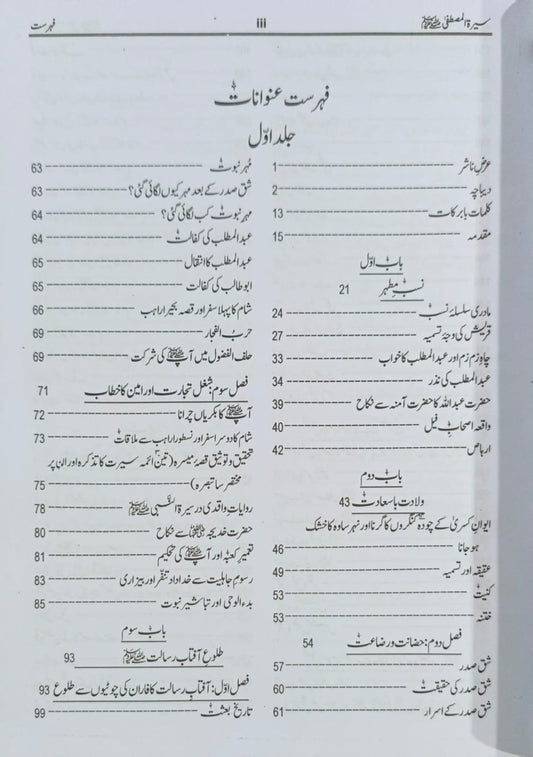 سیرۃ المصطفیٰ ﷺ
iii
فہرست
فہرست عنوانات
جلد اوّل
عرضِ ناشر 1
دیباچہ 2
کلمات بابرکات 13
مقدمہ 15
باب اوّل
نسبِ مطہر 21
مادری سلسلۂ نسب 24
قریش کی وجہ تسمیہ 27
چاہِ زمزم اور عبدالمطلب کا خواب 33
عبدالمطلب کی نذر 34
حضرت عبداللہ کا حضرت آمنہ سے نکاح 39
واقعہ اصحابِ فیل 40
ارہاص 42
باب دوم
ولادت باسعادت 43
ایوانِ کسریٰ کے چودہ کنگروں کا گرنا اور نہر ساوہ کا خشک
ہو جانا 46
عقیقہ اور تسمیہ 49
کنیت 53
ختنہ 53
فصل دوم: حضانت و رضاعت 54
شق صدر 57
شق صدر کی حقیقت 60
شق صدر کے اسرار 61
مُہر نبوت 63
شق صدر کے بعد مہر کیوں لگائی گئی؟ 63
مہر نبوت کب لگائی گئی؟ 64
عبدالمطلب کی کفالت 64
عبدالمطلب کا انتقال 65
ابوطالب کی کفالت 65
شام کا پہلا سفر اور قصہ بحیرا راہب 66
حربُ الفجار 69
حلف الفضول میں آپ ﷺ کی شرکت 69
فصل سوم: شغل تجارت اور امین کا خطاب 71
آپ ﷺ کا بکریاں چرانا 72
شام کا دوسرا سفر اور نسطورا راہب سے ملاقات 73
تحقیق و توثیق قصۂ میسرہ (تین ائمہ سیرت کا تذکرہ اور ان پر
مختصر سا تبصرہ) 75
روایات واقدی در سیرۃ النبی ﷺ 78
حضرت خدیجہ رضی اللہ عنہا سے نکاح 80
تعمیرِ کعبہ اور آپ ﷺ کی تحکیم 81
رسوم جاہلیت سے خداداد تنفر اور بیزاری 83
بدء الوحی اور تباشیر نبوت 85
باب سوم
طلوع آفتابِ رسالت ﷺ 93
فصل اوّل: آفتابِ رسالت کا فاران کی چوٹیوں سے طلوع 93
تاریخ بعثت 99